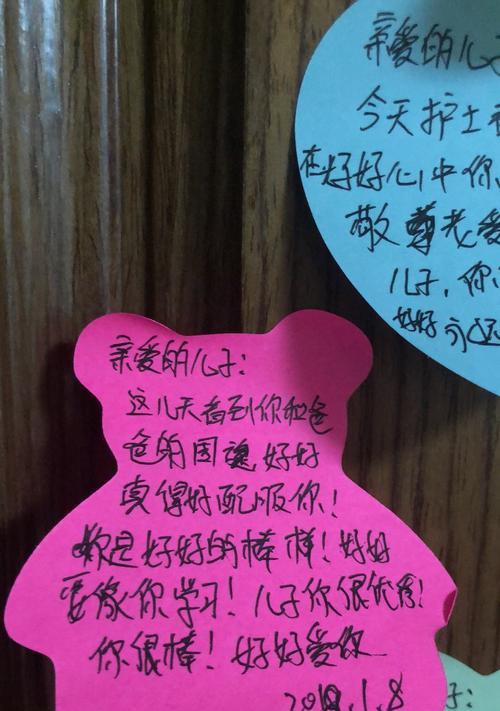 亲爱的儿子
今天护士
在好好心中你
敬尊老爱
儿子，你
好好永远
亲爱的儿子：
这几天看到你和爸
爸的围魂好好
真得好配服你！
你是好好的棒样！好好
要像你学习！儿子你很优秀！
你很棒！好好爱你
2018.1.8
子：